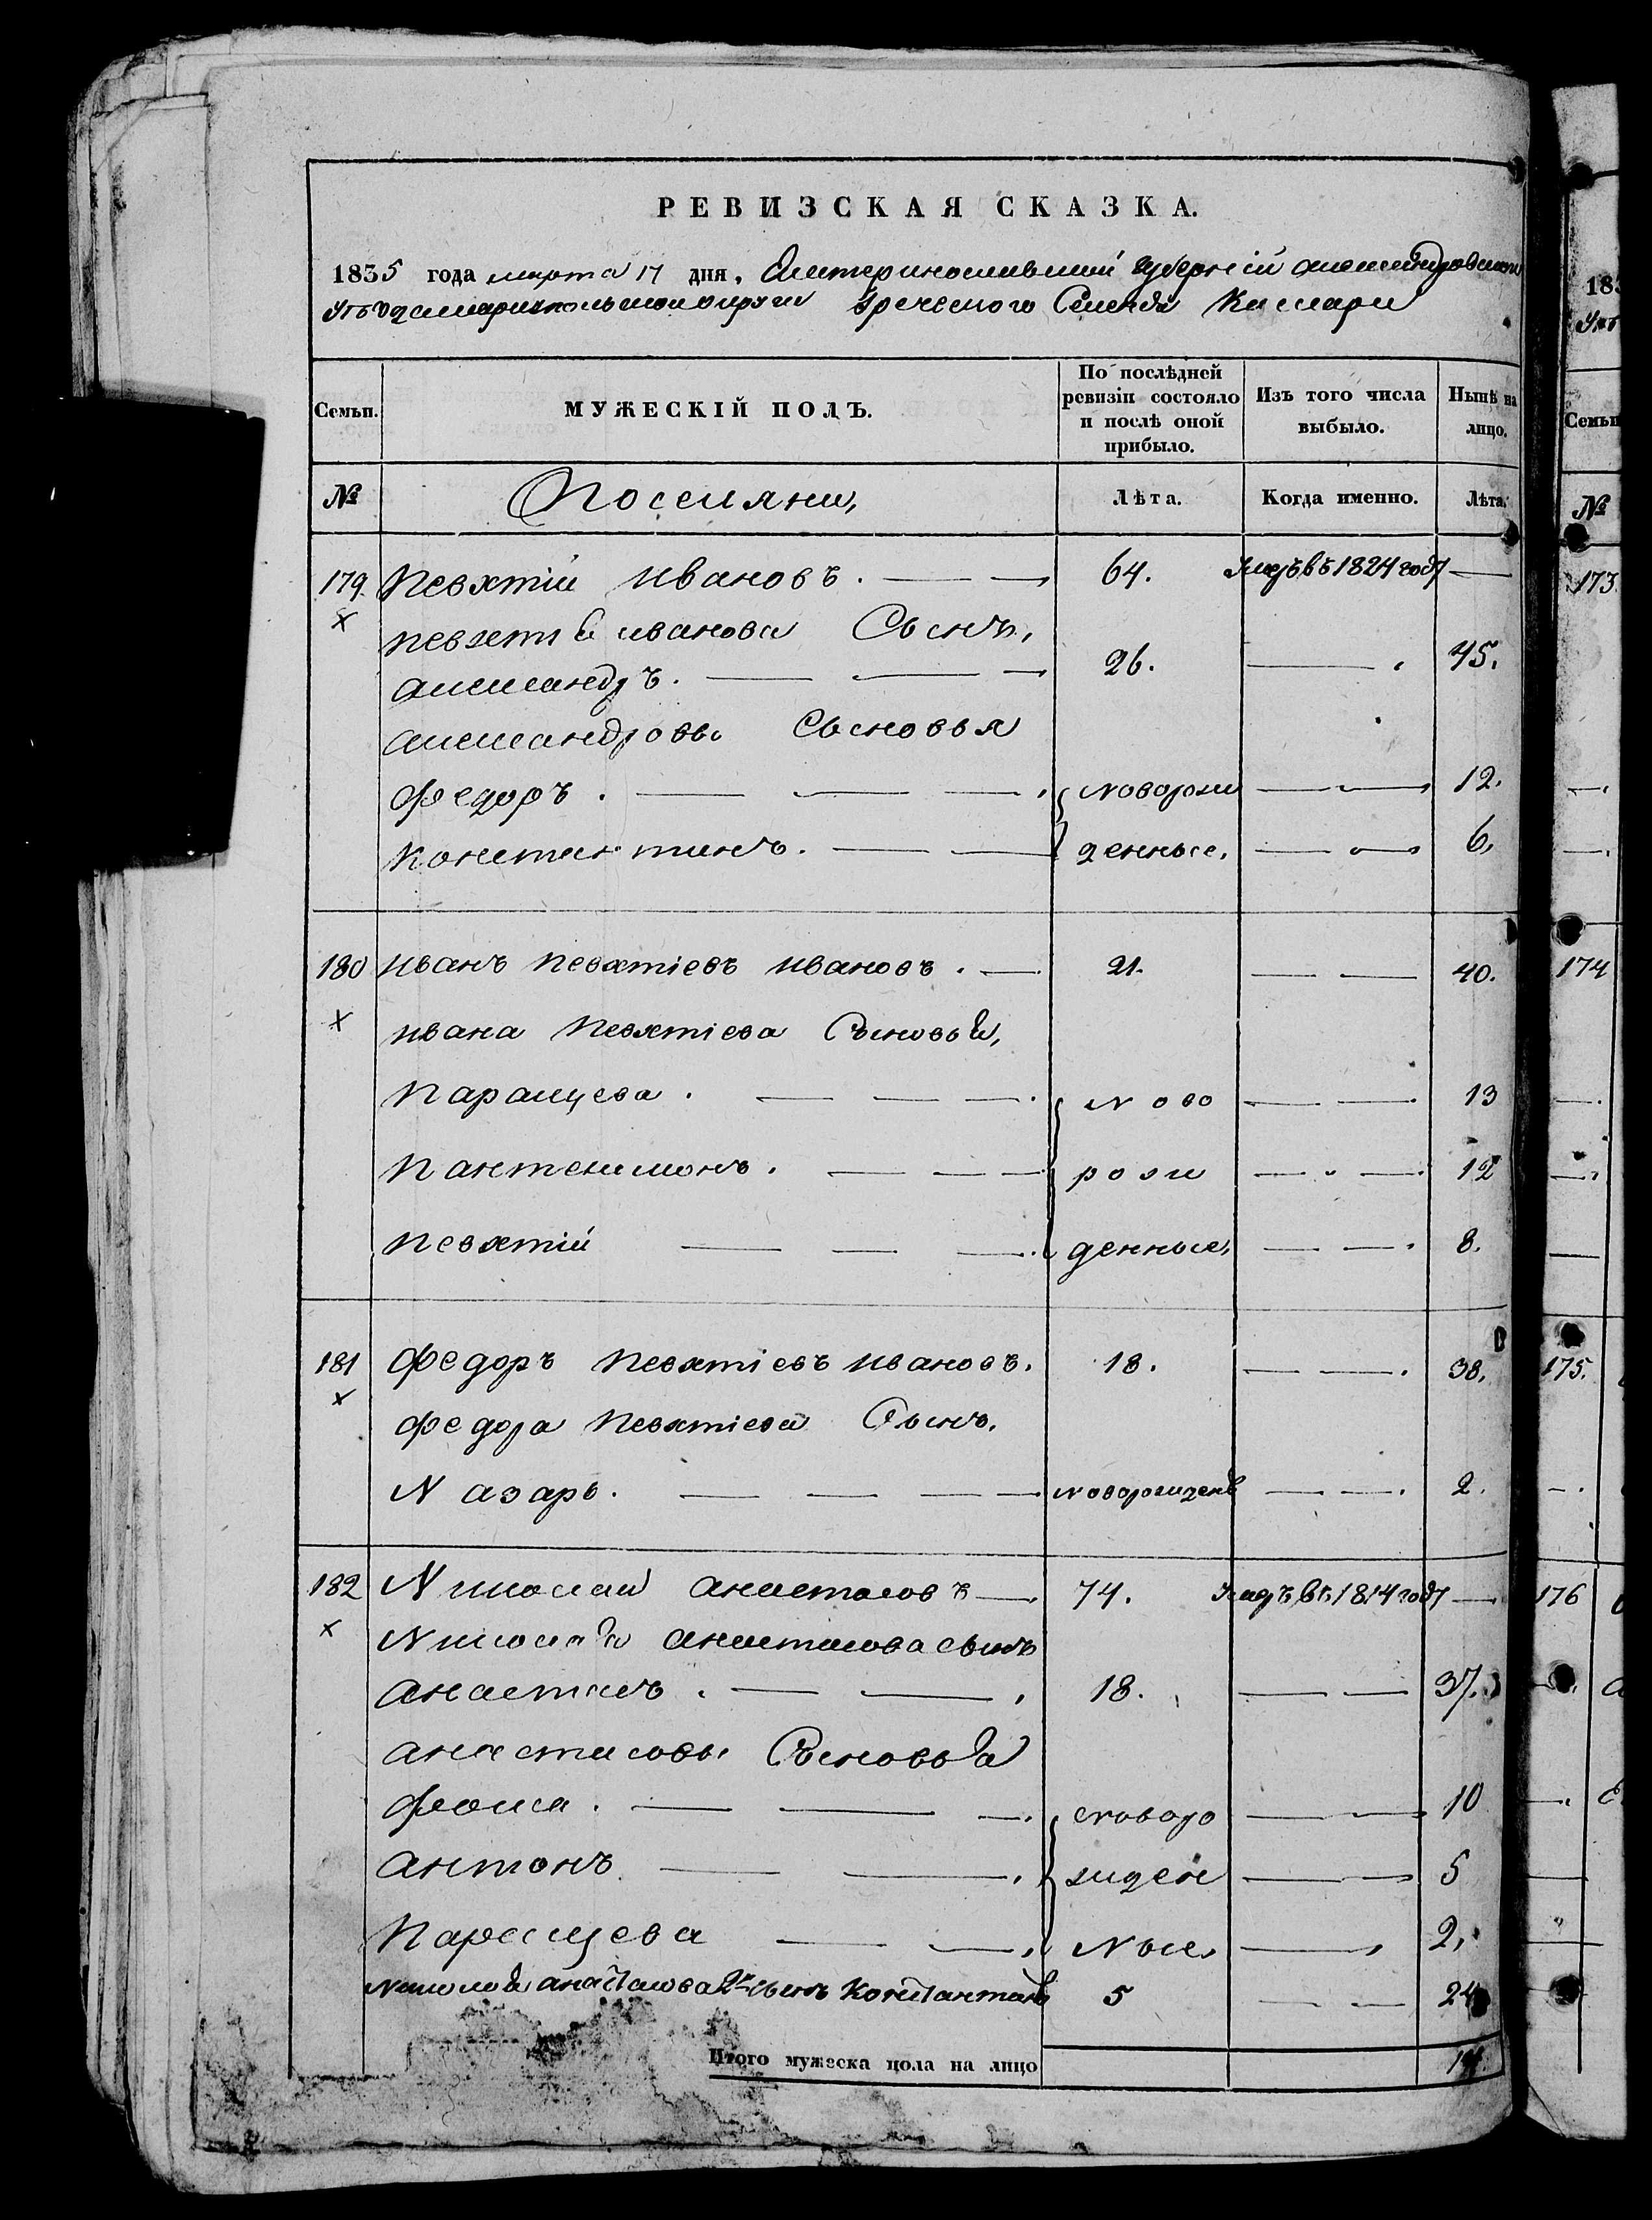 РЕВИЗСКАЯ СКАЗКА.
1835 года марта 17 дня. Екатеринославской губерній александровского
уѣзда мариупольского округи греческого Селенія
Семьи. МУЖЕСКІЙ ПОЛЪ. По послѣдней ревизіи состояло и послѣ оной прибыло. Изъ того числа выбыло. Нынѣ на лицо.
№ Поселяне, Лѣта. Когда именно. Лѣта.
179 Певхтій Ивановъ. 64. Умеръ въ 1824 году
Певхтія иванова Сынъ,
александръ. 26. 45.
александровы Сыновья
федоръ. новорож 12.
константинъ. денные. 6.
180 иванъ Певхтіевъ ивановъ. 21. 40.
ивана Певхтіева Сыновья,
Парасцева. ново 13
Пантелимонъ. рож 12
Певхтій денные, 8.
181 федоръ Певхтіевъ ивановъ. 18. 38.
федора Певхтіева Сынъ.
Назаръ. новорожденъ 2.
182 Николай анастасовъ 74. Умеръ въ 1814 году
Николая анастасова сынъ
анастасъ. 18. 37.
анастасовы Сыновья
фома. новоро 10
антонъ жден 5
Парасцева ные 2,
Николая анастасова 2й сынъ Константинъ 5 24
Итого мужеска пола на лицо
183
Уѣз
Семьи
№
173
174
175.
176